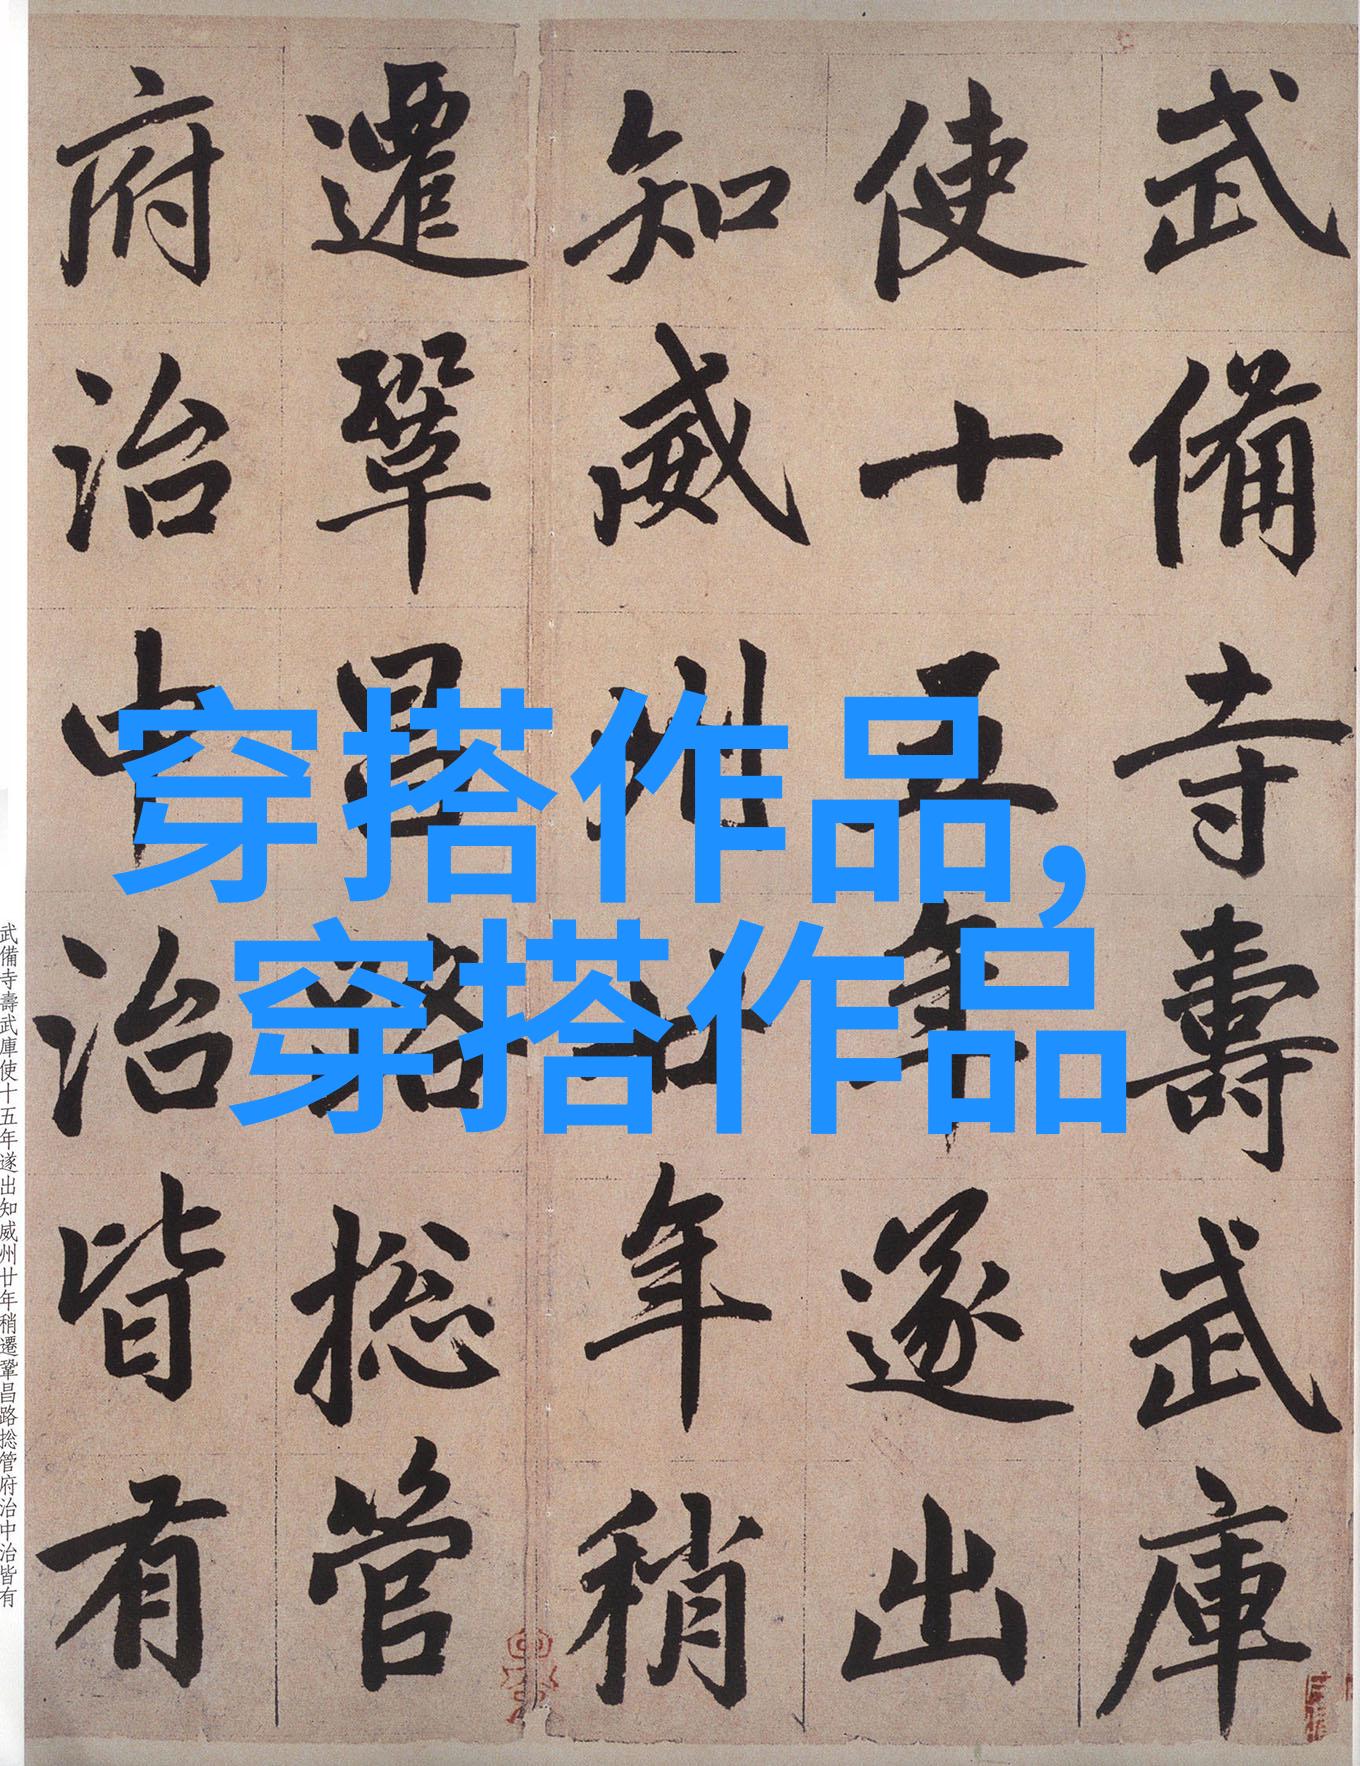 武備寺壽武庫
使十五年遂出
知威州廿年稍
遷鞏昌路捴管
府治中治皆有
武備寺壽武庫使十五年遂出知威州廿年稍遷鞏昌路捴管府治中治皆有
穿搭作品,
穿搭作品